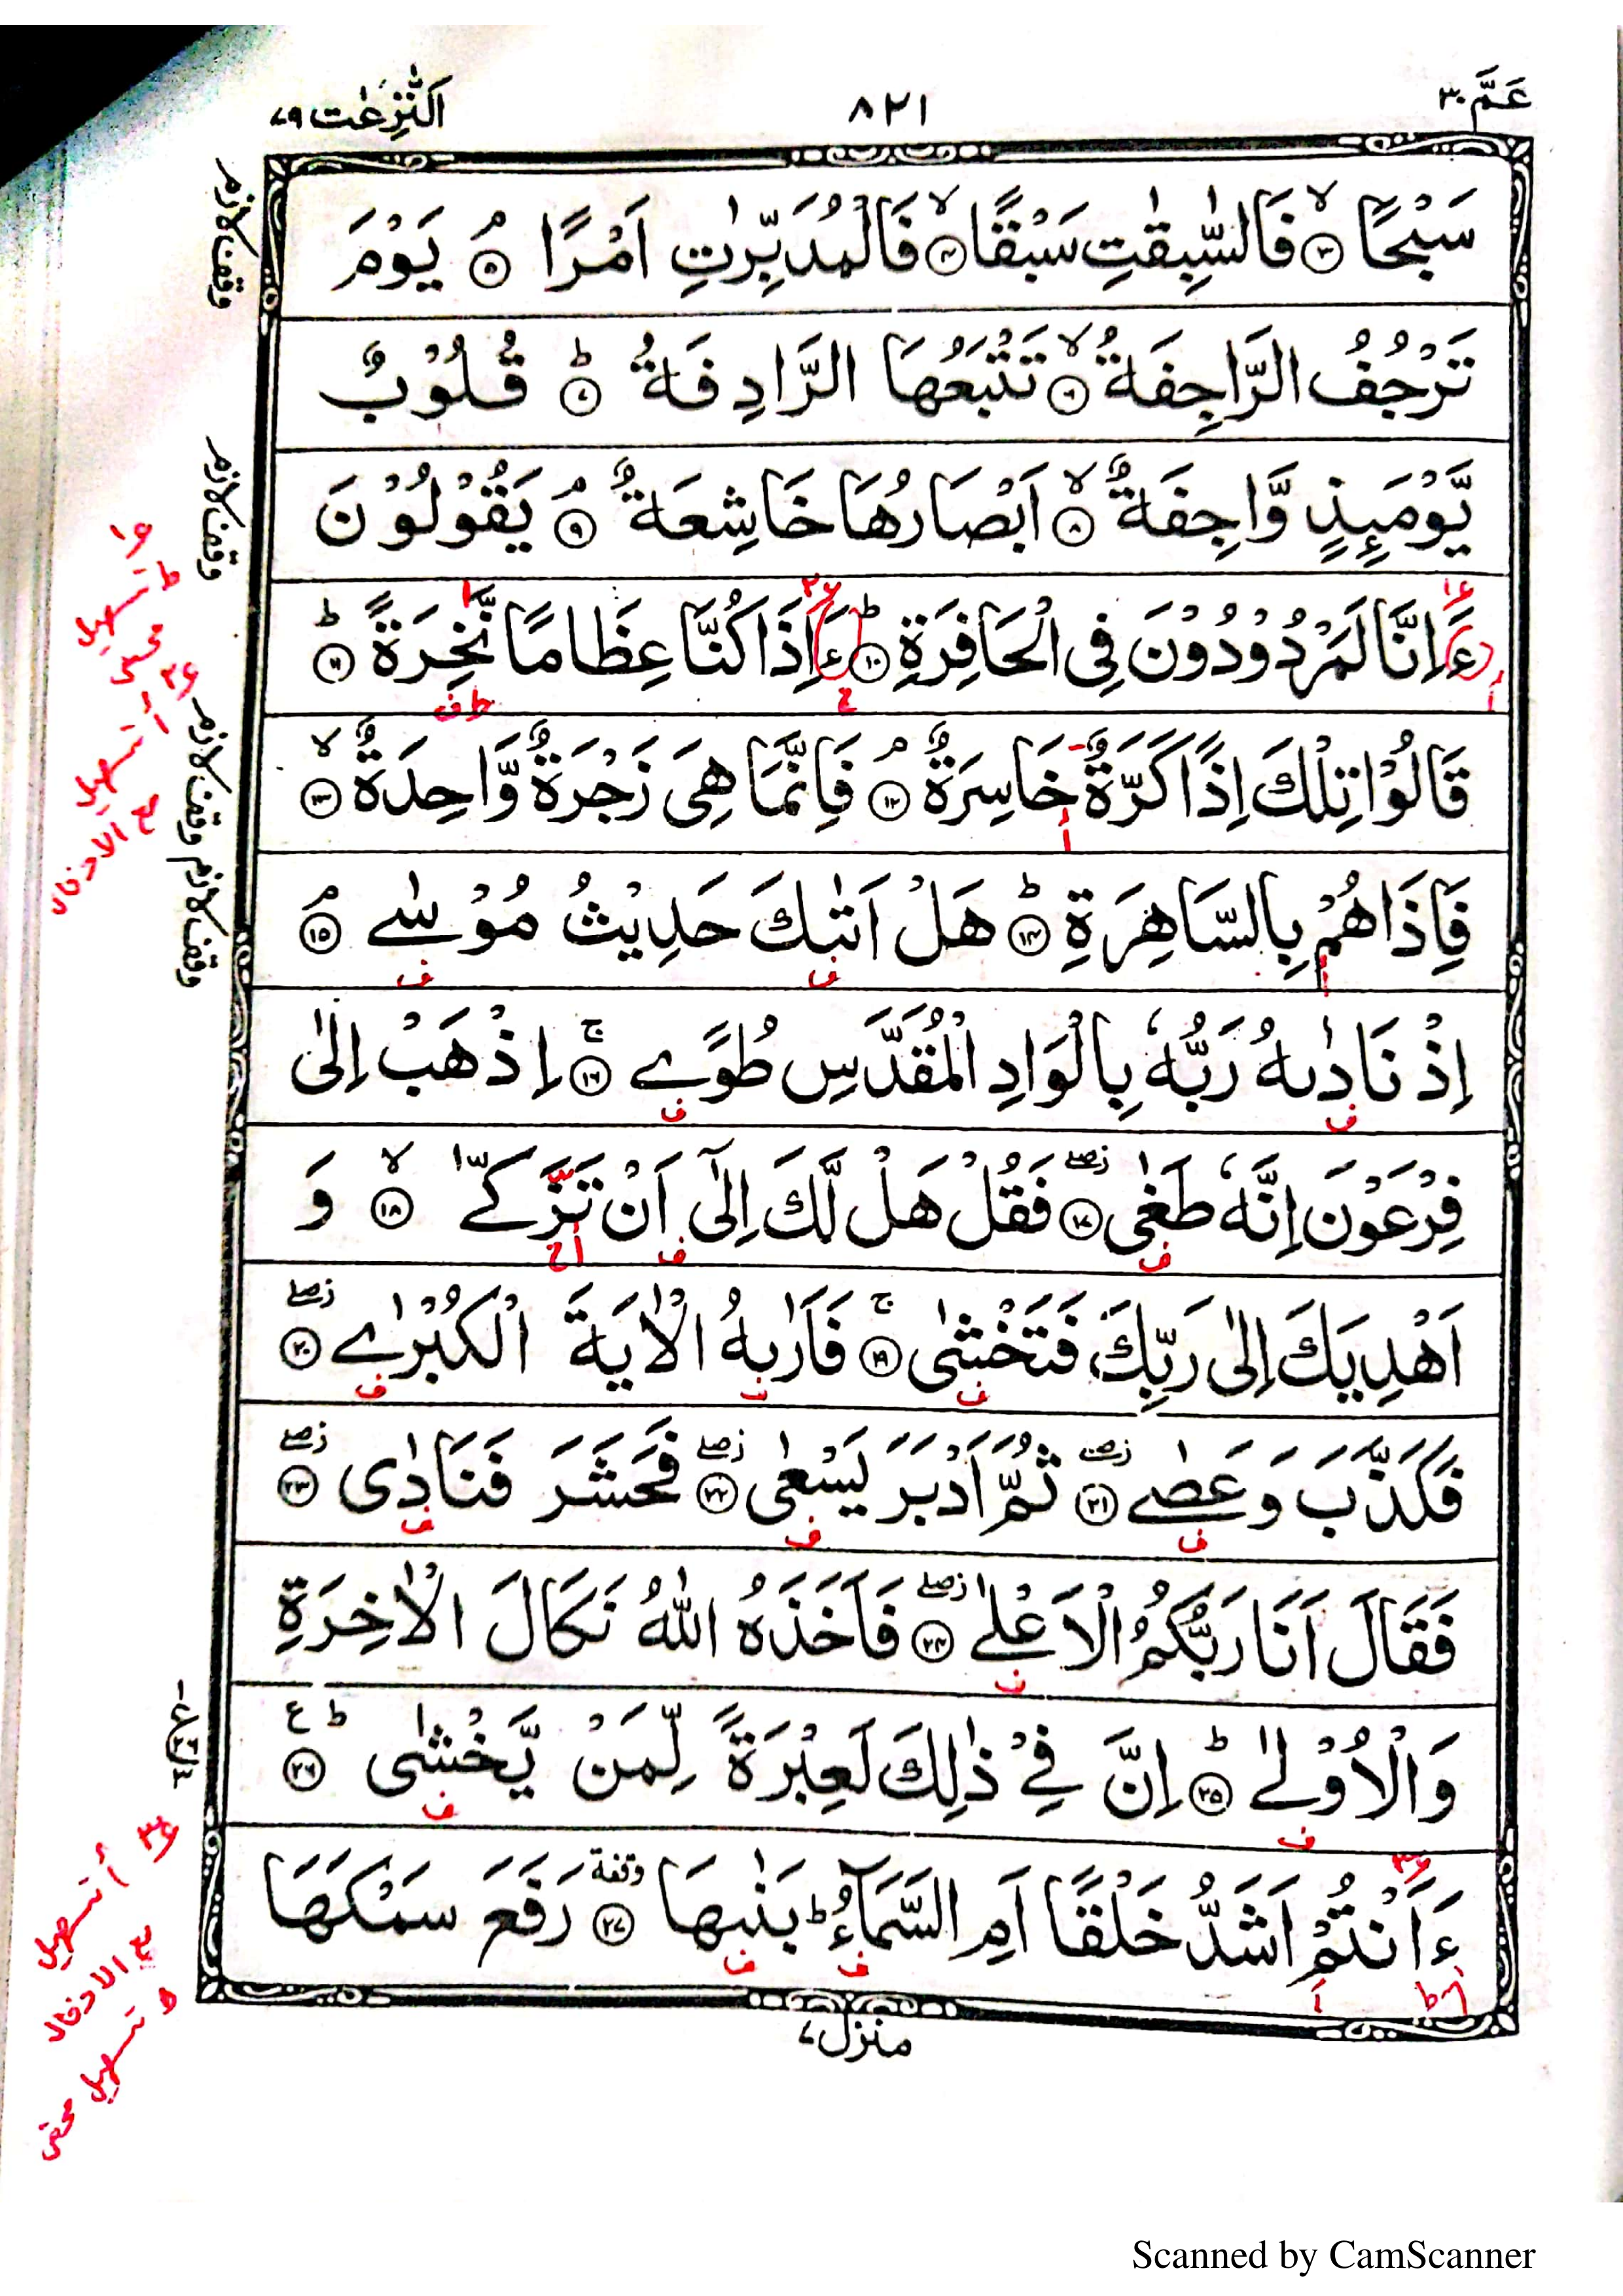 عَمَّ ٣٠
٨٢١
اَلنّٰزِعٰت ٧٩
سَبْحًا ۙ﴿٣﴾ فَالسّٰبِقٰتِ سَبْقًا ۙ﴿٤﴾ فَالْمُدَبِّرٰتِ اَمْرًا ۘ﴿٥﴾ يَوْمَ
تَرْجُفُ الرَّاجِفَةُ ۙ﴿٦﴾ تَتْبَعُهَا الرَّادِفَةُ ؕ﴿٧﴾ قُلُوْبٌ
يَّوْمَىِٕذٍ وَّاجِفَةٌ ۙ﴿٨﴾ اَبْصَارُهَا خَاشِعَةٌ ۘ﴿٩﴾ يَقُوْلُوْنَ
ءَاِنَّا لَمَرْدُوْدُوْنَ فِى الْحَافِرَةِ ؕ﴿١٠﴾ ءَاِذَا كُنَّا عِظَامًا نَّخِرَةً ؕ﴿١١﴾
قَالُوْا تِلْكَ اِذًا كَرَّةٌ خَاسِرَةٌ ۘ﴿١٢﴾ فَاِنَّمَا هِىَ زَجْرَةٌ وَّاحِدَةٌ ۙ﴿١٣﴾
فَاِذَا هُمْ بِالسَّاهِرَةِ ؕ﴿١٤﴾ هَلْ اَتٰىكَ حَدِيْثُ مُوْسٰے ۘ﴿١٥﴾
اِذْ نَادٰىهُ رَبُّهٗ بِالْوَادِ الْمُقَدَّسِ طُوًے ۚ﴿١٦﴾ اِذْهَبْ اِلٰى
فِرْعَوْنَ اِنَّهٗ طَغٰى ۖ﴿١٧﴾ فَقُلْ هَلْ لَّكَ اِلٰٓى اَنْ تَزَكّٰے ۙ﴿١٨﴾ وَ
اَهْدِيَكَ اِلٰى رَبِّكَ فَتَخْشٰى ۚ﴿١٩﴾ فَاَرٰىهُ الْاٰيَةَ الْكُبْرٰے ۖ﴿٢٠﴾
فَكَذَّبَ وَعَصٰے ۖ﴿٢١﴾ ثُمَّ اَدْبَرَ يَسْعٰى ۖ﴿٢٢﴾ فَحَشَرَ فَنَادٰى ۖ﴿٢٣﴾
فَقَالَ اَنَا رَبُّكُمُ الْاَعْلٰے ۖ﴿٢٤﴾ فَاَخَذَهُ اللّٰهُ نَكَالَ الْاٰخِرَةِ
وَالْاُوْلٰے ؕ﴿٢٥﴾ اِنَّ فِىْ ذٰلِكَ لَعِبْرَةً لِّمَنْ يَّخْشٰى ؕ﴿٢٦﴾ ع
ءَاَنْتُمْ اَشَدُّ خَلْقًا اَمِ السَّمَآءُ ؕ بَنٰىهَا وقفة ﴿٢٧﴾ رَفَعَ سَمْكَهَا
منزل ٧
وقف لازم
وقف لازم
وقف لازم
وقف لازم
ء١
ط تسهيل
ء٢ أ تسهيل
مع الادخال
ء٣ أ تسهيل
مع الادخال
Scanned by CamScanner